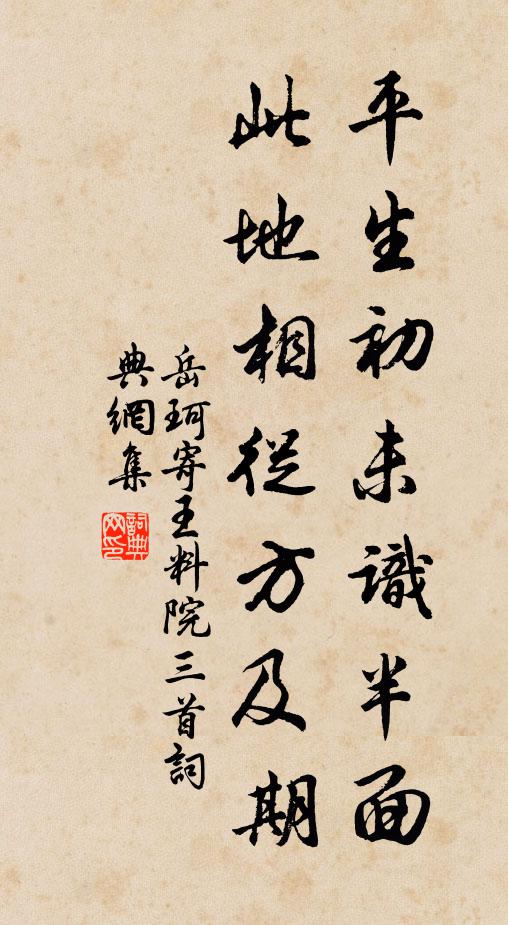 平生初未識半面
此地相從方及期
岳珂寄王料院三首詞
典網集
詞典網印